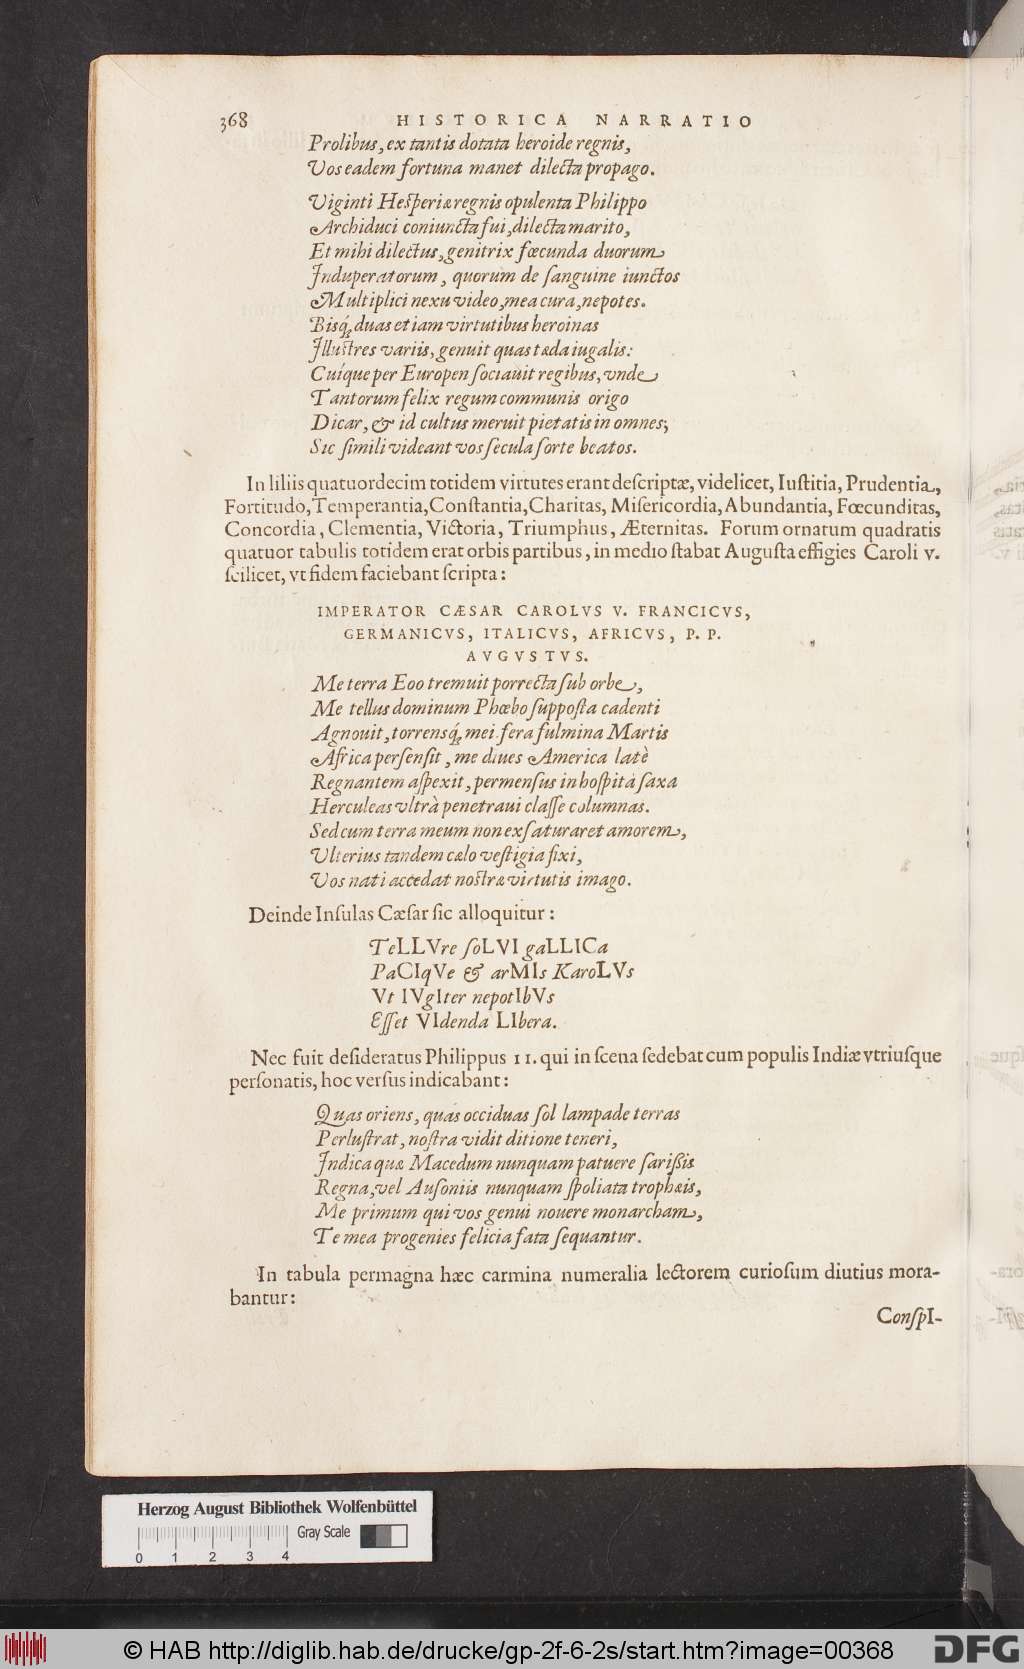 368 HISTORICA NARRATIO
Prolibus, ex tantis dotata heroide regnis,
Vos eadem fortuna manet dilecta propago.
Viginti Hesperiæ regnis opulenta Philippo
Archiduci coniuncta fui, dilecta marito,
Et mihi dilectus, genitrix fœcunda duorum
Induperatorum, quorum de ſanguine iunctos
Multiplici nexu video, mea cura, nepotes.
Bisq́; duas etiam virtutibus heroinas
Illuſtres variis, genuit quas tæda iugalis:
Cuíque per Europen ſociauit regibus, vnde
Tantorum felix regum communis origo
Dicar, & id cultus meruit pietatis in omnes;
Sic ſimili videant vos ſecula ſorte beatos.
In liliis quatuordecim totidem virtutes erant deſcriptæ, videlicet, Iuſtitia, Prudentia,
Fortitudo, Temperantia, Conſtantia, Charitas, Miſericordia, Abundantia, Fœcunditas,
Concordia, Clementia, Victoria, Triumphus, Æternitas. Forum ornatum quadratis
quatuor tabulis totidem erat orbis partibus, in medio ſtabat Auguſta effigies Caroli v.
ſcilicet, vt fidem faciebant ſcripta:
IMPERATOR CÆSAR CAROLVS V. FRANCICVS,
GERMANICVS, ITALICVS, AFRICVS, P. P.
AVGVSTVS.
Me terra Eoo tremuit porrecta ſub orbe,
Me tellus dominum Phœbo ſuppoſta cadenti
Agnouit, torrensq́; mei fera fulmina Martis
Africa perſenſit, me diues America latè
Regnantem aſpexit, permenſus inhoſpita ſaxa
Herculeas vltrà penetraui claſſe columnas.
Sed cum terra meum non exſaturaret amorem,
Vlterius tandem cælo veſtigia fixi,
Vos nati accedat noſtræ virtutis imago.
Deinde Inſulas Cæſar ſic alloquitur:
TeLLVre ſoLVI gaLLICa
PaCIqVe & arMIs KaroLVs
Vt IVgIter nepotIbVs
Eſſet VIdenda LIbera.
Nec fuit deſideratus Philippus II. qui in ſcena ſedebat cum populis Indiæ vtriuſque
perſonatis, hoc verſus indicabant:
Quas oriens, quas occiduas ſol lampade terras
Perluſtrat, noſtra vidit ditione teneri,
Indica quæ Macedum nunquam patuere ſarißis
Regna, vel Auſoniis nunquam ſpoliata trophæis,
Me primum qui vos genui nouere monarcham,
Te mea progenies felicia fata ſequantur.
In tabula permagna hæc carmina numeralia lectorem curioſum diutius mora-
bantur:
ConſpI-
Herzog August Bibliothek Wolfenbüttel
Gray Scale
0 1 2 3 4
© HAB http://diglib.hab.de/drucke/gp-2f-6-2s/start.htm?image=00368
DFG